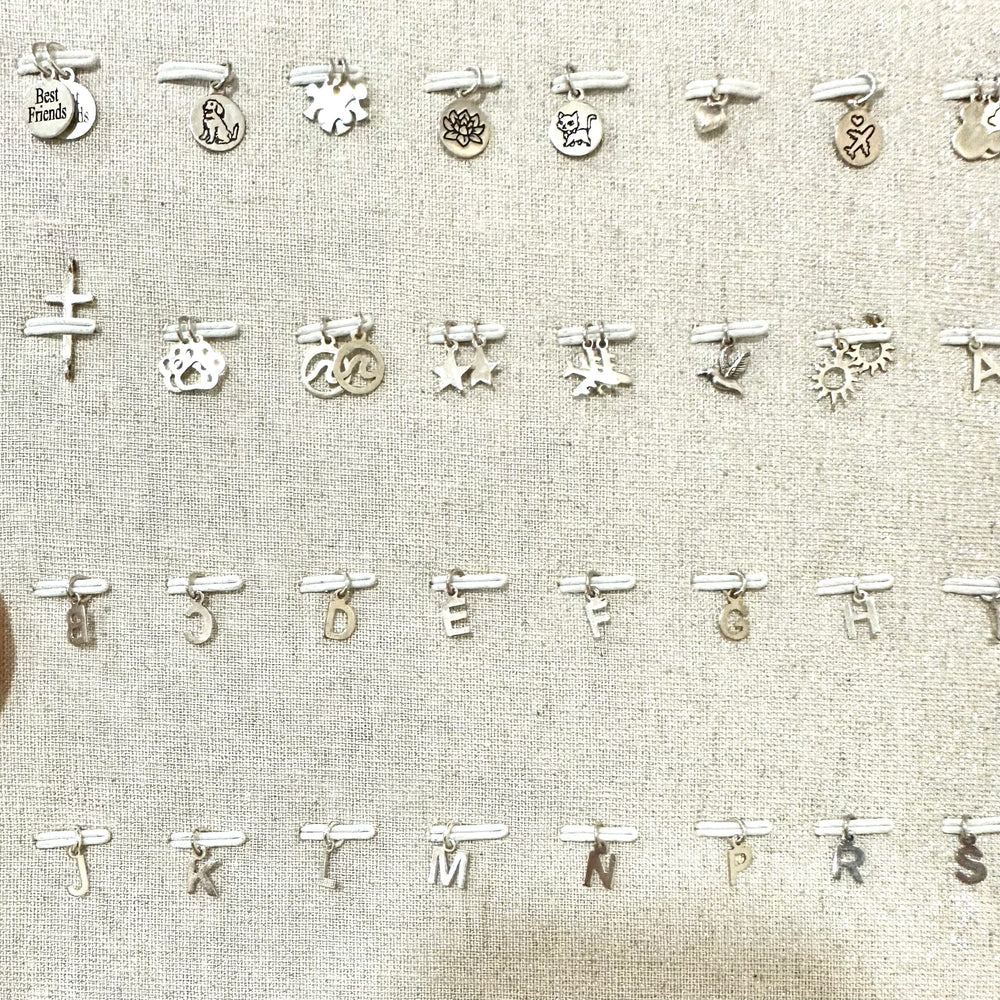 Best
Friends
A
B
C
D
E
F
G
H
J
K
L
M
N
P
R
S